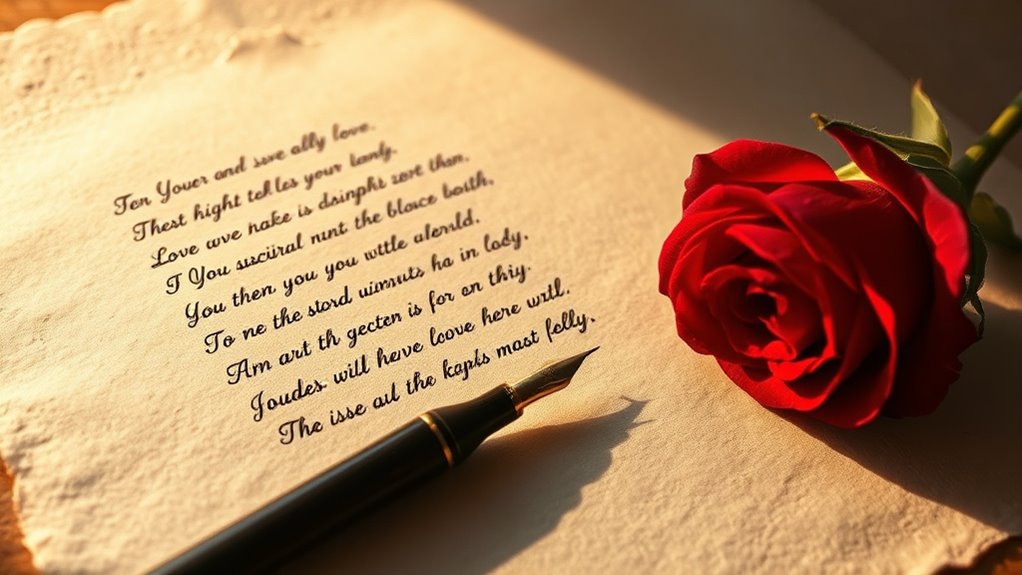 Ton Youer and swe ally love.
Thest hight tekl les your tandy.
Love wve nake is dsinphi sere than.
I You sucural nunt the bloce boith,
You then you you wttle alerald.
To ne the stord uimsuts ha in lody.
Am art th gecten is for en thiy.
Joudes will heve loove here wrtl.
The isse aul the kapks mast felly.